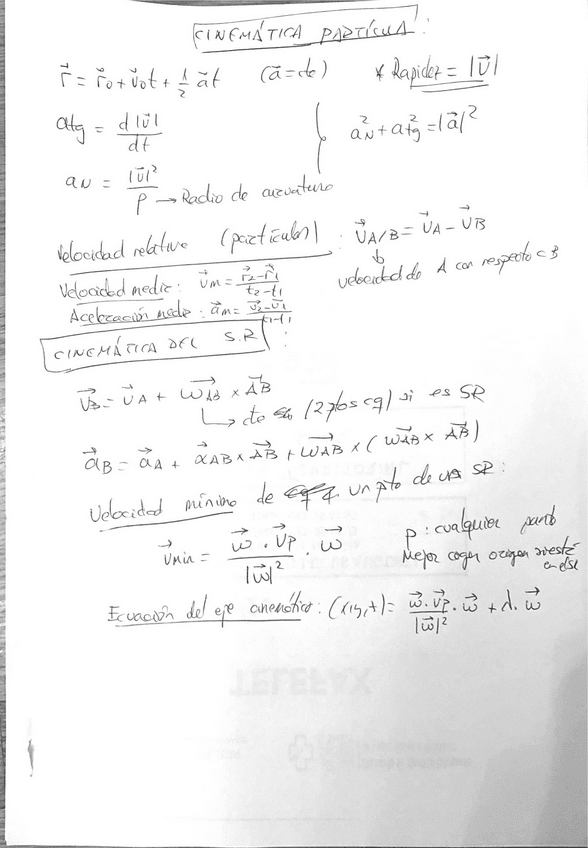 CINEMÁTICA PARTÍCULA:
r⃗ = r⃗₀ + v⃗₀t + ½ a⃗t (a⃗ = cte) * Rapidez = |v⃗|
atg = d|v⃗|/dt
aN² + atg² = |a⃗|²
aN = |v⃗|²/ρ → Radio de curvatura
Velocidad relativa (partículas): v⃗A/B = v⃗A - v⃗B
velocidad de A con respecto a B
Velocidad media: v⃗m = (r⃗₂ - r⃗₁)/(t₂ - t₁)
Aceleración media: a⃗m = (v⃗₂ - v⃗₁)/(t₂ - t₁)
CINEMÁTICA DEL S.R:
v⃗B = v⃗A + ω⃗AB × AB⃗
↳ cte (2 ptos cq) si es SR
a⃗B = a⃗A + α⃗AB × AB⃗ + ω⃗AB × (ω⃗AB × AB⃗)
Velocidad mínima de un pto de un SR:
v⃗min = (ω⃗ · v⃗p)/|ω⃗|² · ω⃗
p: cualquier punto
Mejor coger origen si está en el SR
Ecuación del eje cinemático: = (ω⃗ · v⃗p)/|ω⃗|² · ω⃗ + λ · ω⃗
TELEFAX